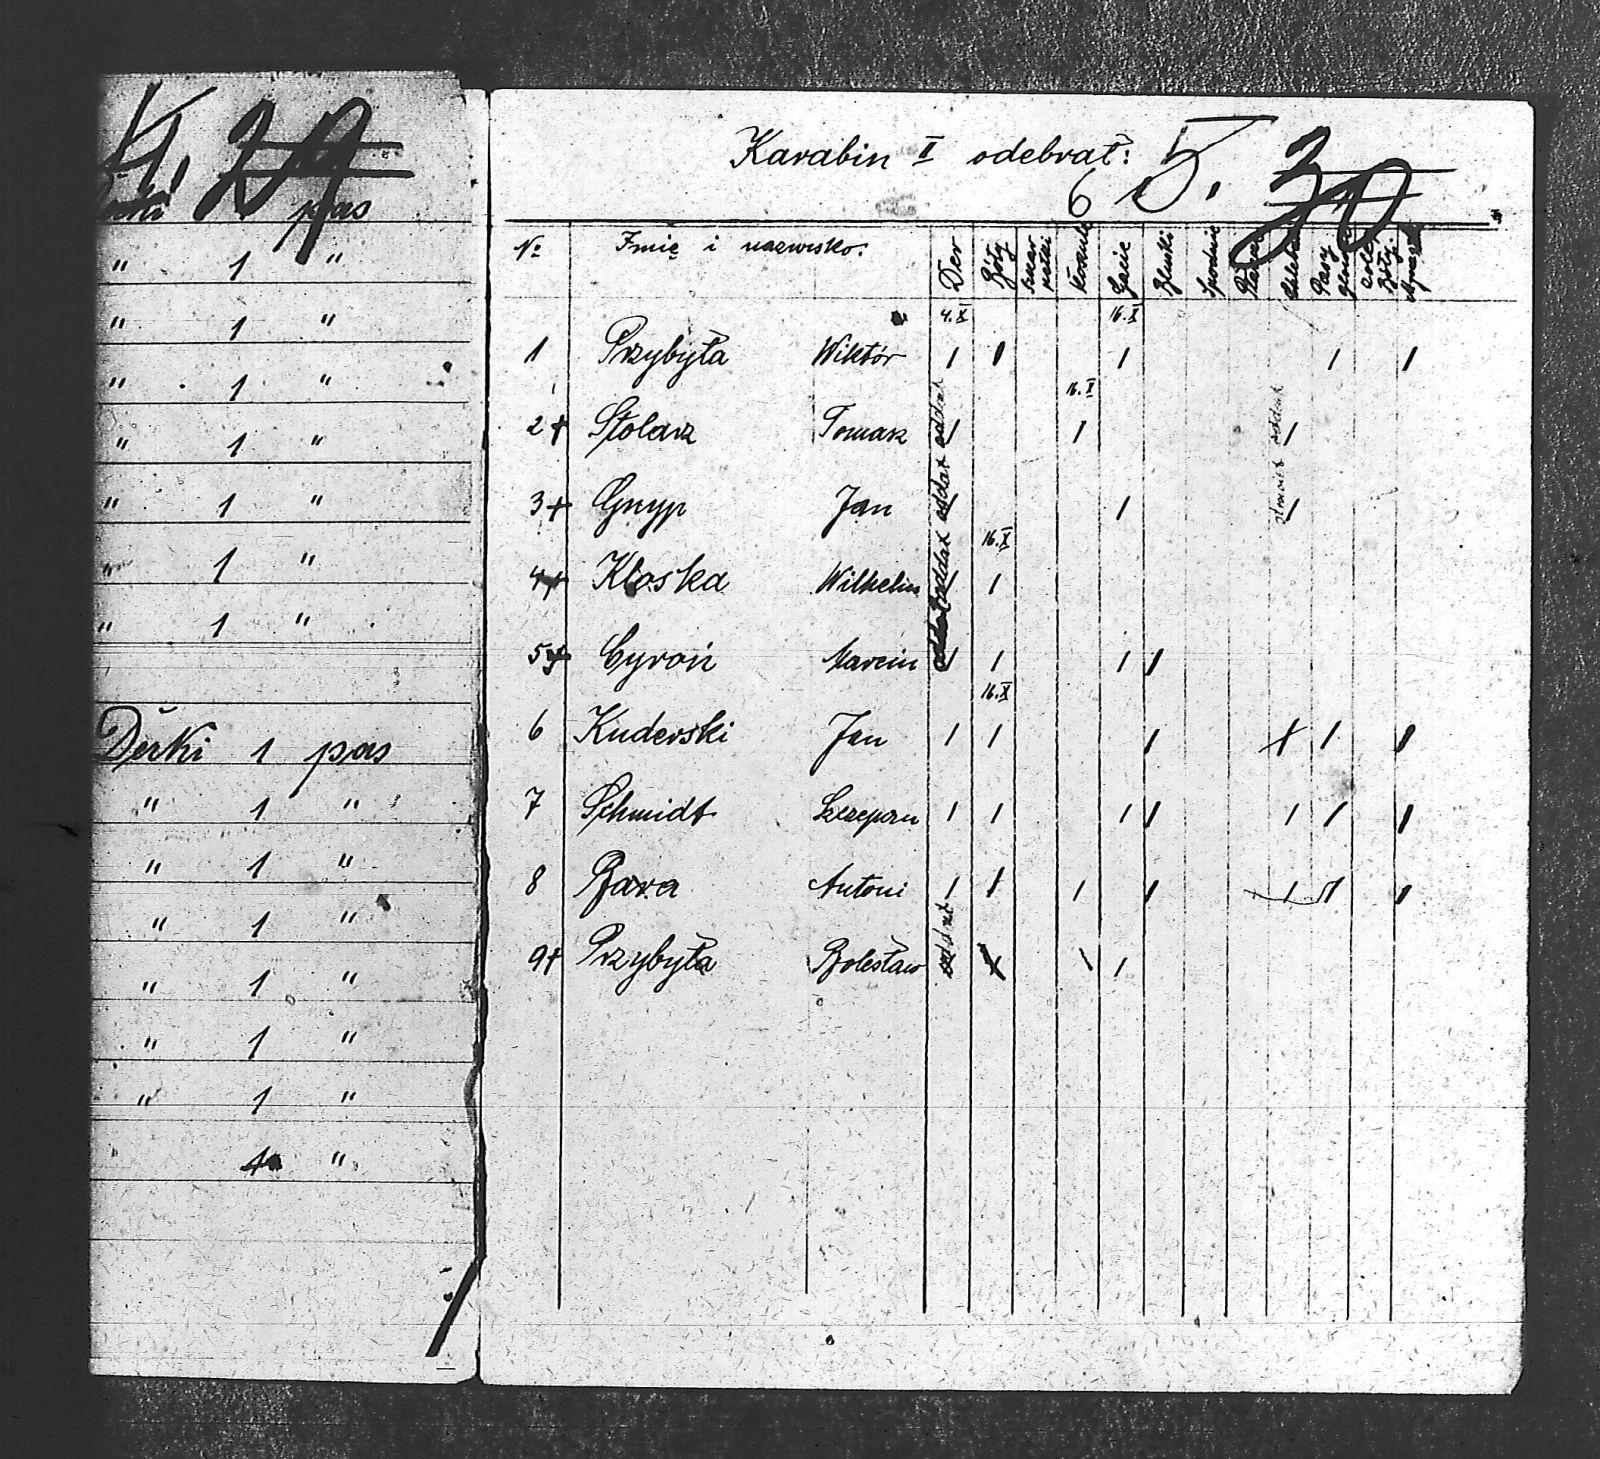 4. 29
1 pas
" 1 "
" 1 "
" 1 "
" 1 "
" 1 "
" 1 "
" 1 "
Derki 1 pas
" 1 "
" 1 "
" 1 "
" 1 "
" 1 "
" 1 "
1 "
Karabin II odebrał:
6 5. 30
№ Imię i nazwisko. Der Bóty Koszule Gacie Bluski Spodnie Pasy
4.X 16.X
1 Przybyła Wiktór 1 1 1 1 1
16.X
2+ Stolarz Tomasz oddał 1 1 1 oddał
3+ Gnyp Jan oddał 1 1 1
16.X
4+ Kloska Wilhelm oddał 1 1
5+ Cyroń Marcin oddał 1 1 1 1
16.X
6 Kuderski Jan 1 1 1 + 1 1
7 Schmidt Szczepan 1 1 1 1 1 1 1
8 Bara Antoni 1 1 1 1 1 1 1
9+ Przybyła Bolesław oddał 1 1